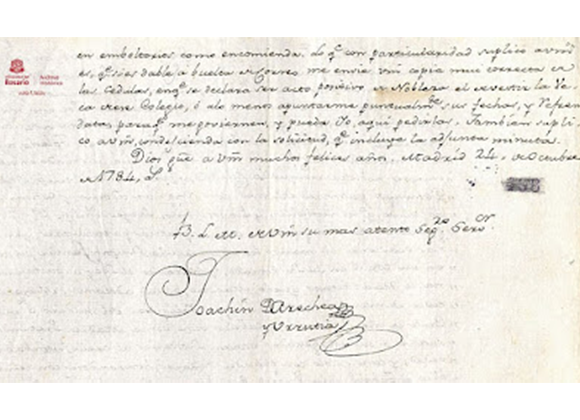 Universidad del
Rosario
Archivo
Histórico
en emboltorios como encomienda. Lo q.e con particularidad suplico a vm̃
es, q.e si es dable a buelta de Correo me envie una copia mui correcta de
las Cedulas, en q.e se declara ser acto positivo de Nobleza el vestir la Ve
ca de ese Colegio, ó alo menos apuntarme puntualm.te sus fechas, y
datas, para q.e me goviernen, y pueda Yo, aqui pedirlas. Tambien supli
co a vm̃, condescienda con la solicitud, q.e incluye la adjunta minuta.
Dios gũe a vm̃ muchos felices años, Madrid 24, de Octubre
de 1784,,
B. L. M. de Vm̃ su mas atento Seg.ro Serv.or
Joachin de Arechea
y Urrutia